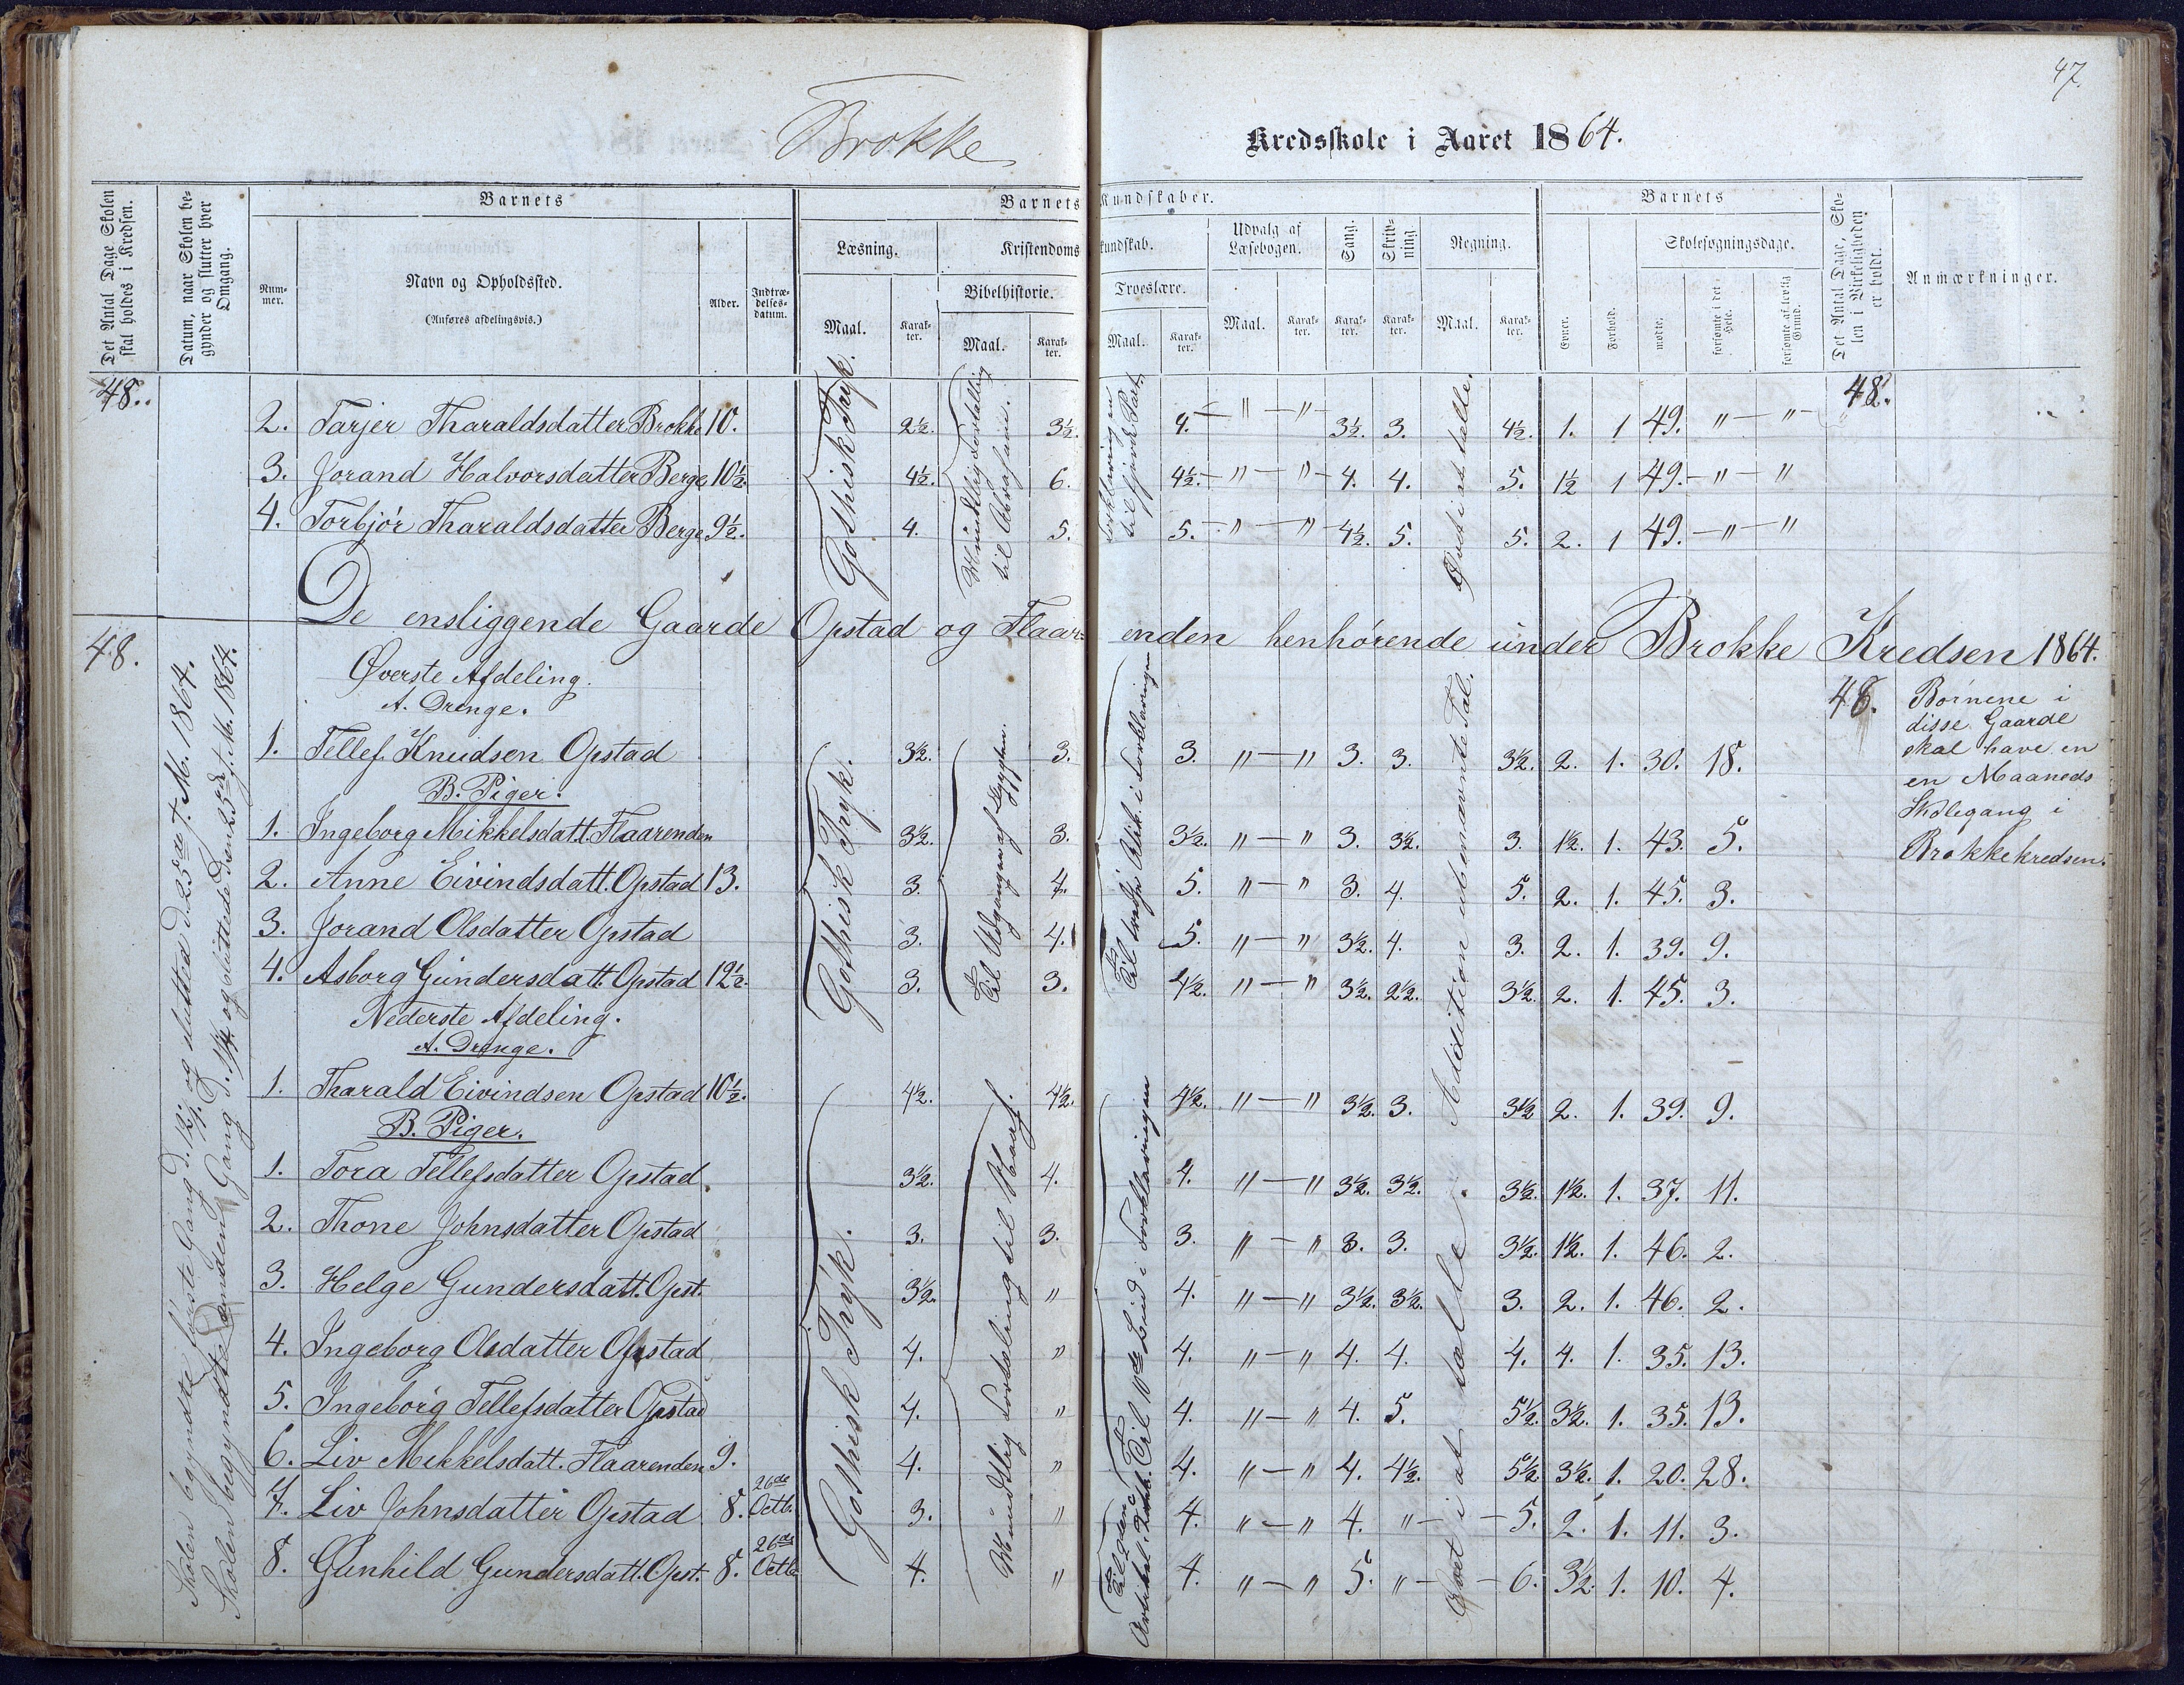 47.
Brokke Kredsskole i Aaret 1864.
Det Antal Dage Skolen skal holdes i Kredsen.
Datum, naar Skolen begynder og slutter hver Omgang.
Barnets
Nummer.
Navn og Opholdssted.
(Anføres afdelingsvis.)
Alder.
Indtrædelsesdatum.
Barnets Kundskaber.
Læsning.
Maal.
Karakter.
Kristendomskundskab.
Bibelhistorie.
Maal.
Karakter.
Troeslære.
Maal.
Karakter.
Udvalg af Læsebogen.
Maal.
Karakter.
Sang.
Karakter.
Skrivning.
Karakter.
Regning.
Maal.
Karakter.
Barnets
Evner.
Forhold.
Skolesøgningsdage.
mødte.
forsømte i det Hele.
forsømte af lovlig Grund.
Det Antal Dage, Skolen i Virkeligheden er holdt.
Anmærkninger.
48.
Gothisk Tryk.
Mundtlig Fortælling til Abraham.
Forklaring en til fjerde Part.
Øvet i at tælle.
48.
2. Tarjer Tharaldsdatter Brokke 10. 2½. 3½. 4. — " — " — 3½. 3. 4½. 1. 1 49. " — " —
3. Jorand Halvorsdatter Berge 10½. 4½. 6. 4½. — " — " — 4. 4. 5. 1½ 1 49. — " — "
4. Torbjør Tharaldsdatter Berge 9½. 4. 5. 5. — " — " — 4½. 5. 5. 2. 1 49. — " — "
De ensliggende Gaarde Opstad og Flaarenden henhørende under Brokke Kredsen 1864.
48.
Skolen begyndte første Gang d. 12/1. og slutted d. 25de f. M. 1864.
Skolen begyndte anden Gang d. 1/4. og sluttede den 25de f. M. 1864.
Øverste Afdeling.
A. Drenge.
48.
Børnene i
disse Gaarde
skal have en
en Maaneds
Skolegang i
Brokkekredsen.
Gothisk Tryk.
Til Udgangen af Ægypten.
Addition ubenævnte Tal.
1. Tellef Knudsen Opstad 3½. 3. 3. " — " 3. 3. 3½. 2. 1. 30. 18.
B. Piger.
1. Ingeborg Mikkelsdatt. Flaarenden 3½. 3. 3½. " — " 3. 3½. 3. 1½. 1. 43. 5.
2. Anne Eivindsdatt. Opstad 13. 3. 4. 5. " — " 3. 4. 5. 2. 1. 45. 3.
3. Jorand Olsdatter Opstad 3. 4. 5. " — " 3½. 4. 3. 2. 1. 39. 9.
4. Asborg Gundersdatt. Opstad 12½. 3. 3. 4½. " — " 3½. 2½. 3½. 2. 1. 45. 3.
Nederste Afdeling.
A. Drenge.
Gothisk Tryk.
Mundtlig Fortæling til
Til 10de Bud i Forklaringen
Til den Artikel.
Øvet i at tælle.
1. Tharald Eivindsen Opstad 10½. 4½. 4½. 4½. " — " 3½. 3. 3½ 2. 1. 39. 9.
B. Piger.
1. Tora Tellefsdatter Opstad. 3½. 4. 4. " — " 3½. 3½. 3½. 1½. 1. 37. 11.
2. Thone Johnsdatter Opstad 3. 3. 3. " — " 3. 3. 3½. 1½. 1. 46. 2.
3. Helge Gundersdatt. Opst. 3½. " 4. " — " 3½. 3½. 3. 2. 1. 46. 2.
4. Ingeborg Olsdatter Opstad 4. " 4. " — " 4. 4. 4. 4. 1. 35. 13.
5. Ingeborg Tellefsdatter Opstad 4. " 4. " — " 4. 5. 5½. 3½. 1. 35. 13.
6. Liv Mikkelsdatt. Flaarenden 9. 4. " 4. " — " 4. 4½. 5½. 3½. 1. 20. 28.
7. Liv Johnsdatter Opstad 8. 26de Octb. 3. " 4. " — " 4. " — — 5. 2. 1. 11. 3.
8. Gunhild Gundersdatt. Opst. 8. 26de Octb 4. " 4. " — " 5. " — — 6. 3½. 1. 10. 4.